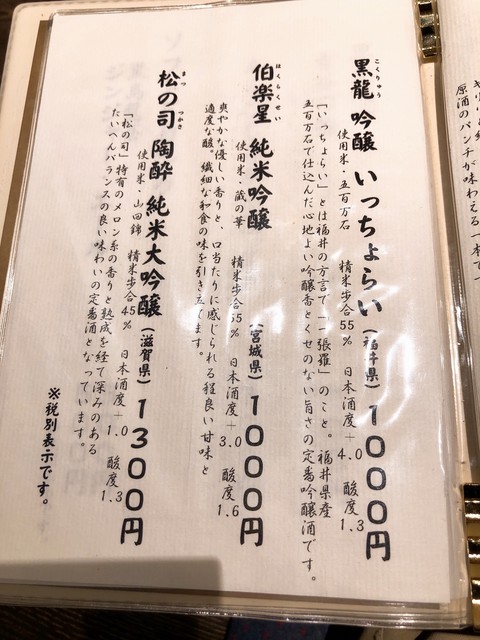 原酒のパンチが味わえる一本で
黒龍 吟醸 いっちょらい（福井県）1000円
こくりゅう
使用米・五百万石 精米歩合55% 日本酒度+4.0 酸度1.3
「いっちょらい」とは福井の方言で「一張羅」のこと。福井県産
五百万石で仕込んだ心地よい吟醸香とくせのない旨さの定番吟醸酒です。
伯楽星 純米吟醸（宮城県）1000円
はくらくせい
使用米・蔵の華 精米歩合55% 日本酒度+3.0 酸度1.6
爽やかな優しい香りと、口当たりに感じられる程良い甘味と
適度な酸。繊細な和食の味を引き立てます。
松の司 陶酔 純米大吟醸（滋賀県）1300円
まつ つかさ
使用米・山田錦 精米歩合45% 日本酒度+1.0 酸度1.3
「松の司」特有のメロン系の香りと熟成を経て深みのある
たいへんバランスの良い味わいの定番酒となっています。
※税別表示です。